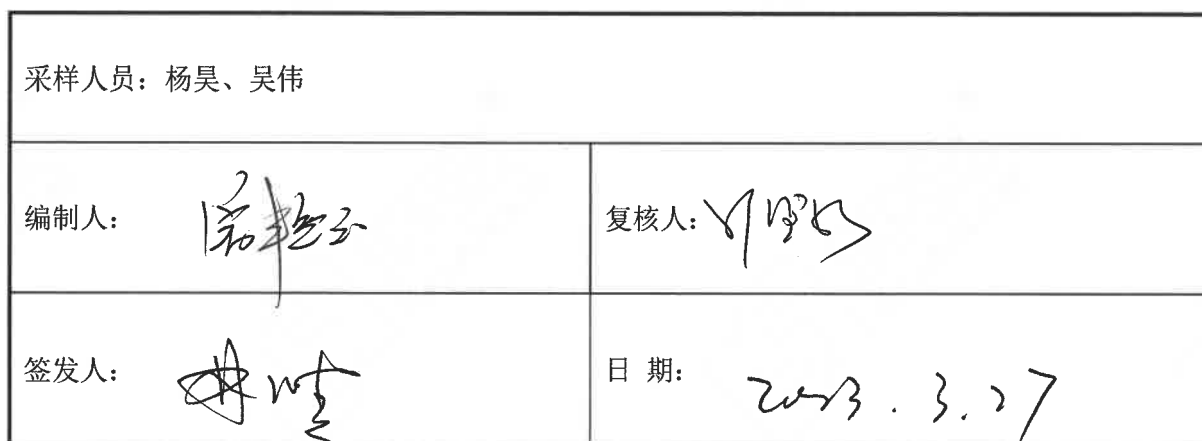 采样人员：杨昊、吴伟
编制人：
复核人：
签发人：
日 期：2023.3.27